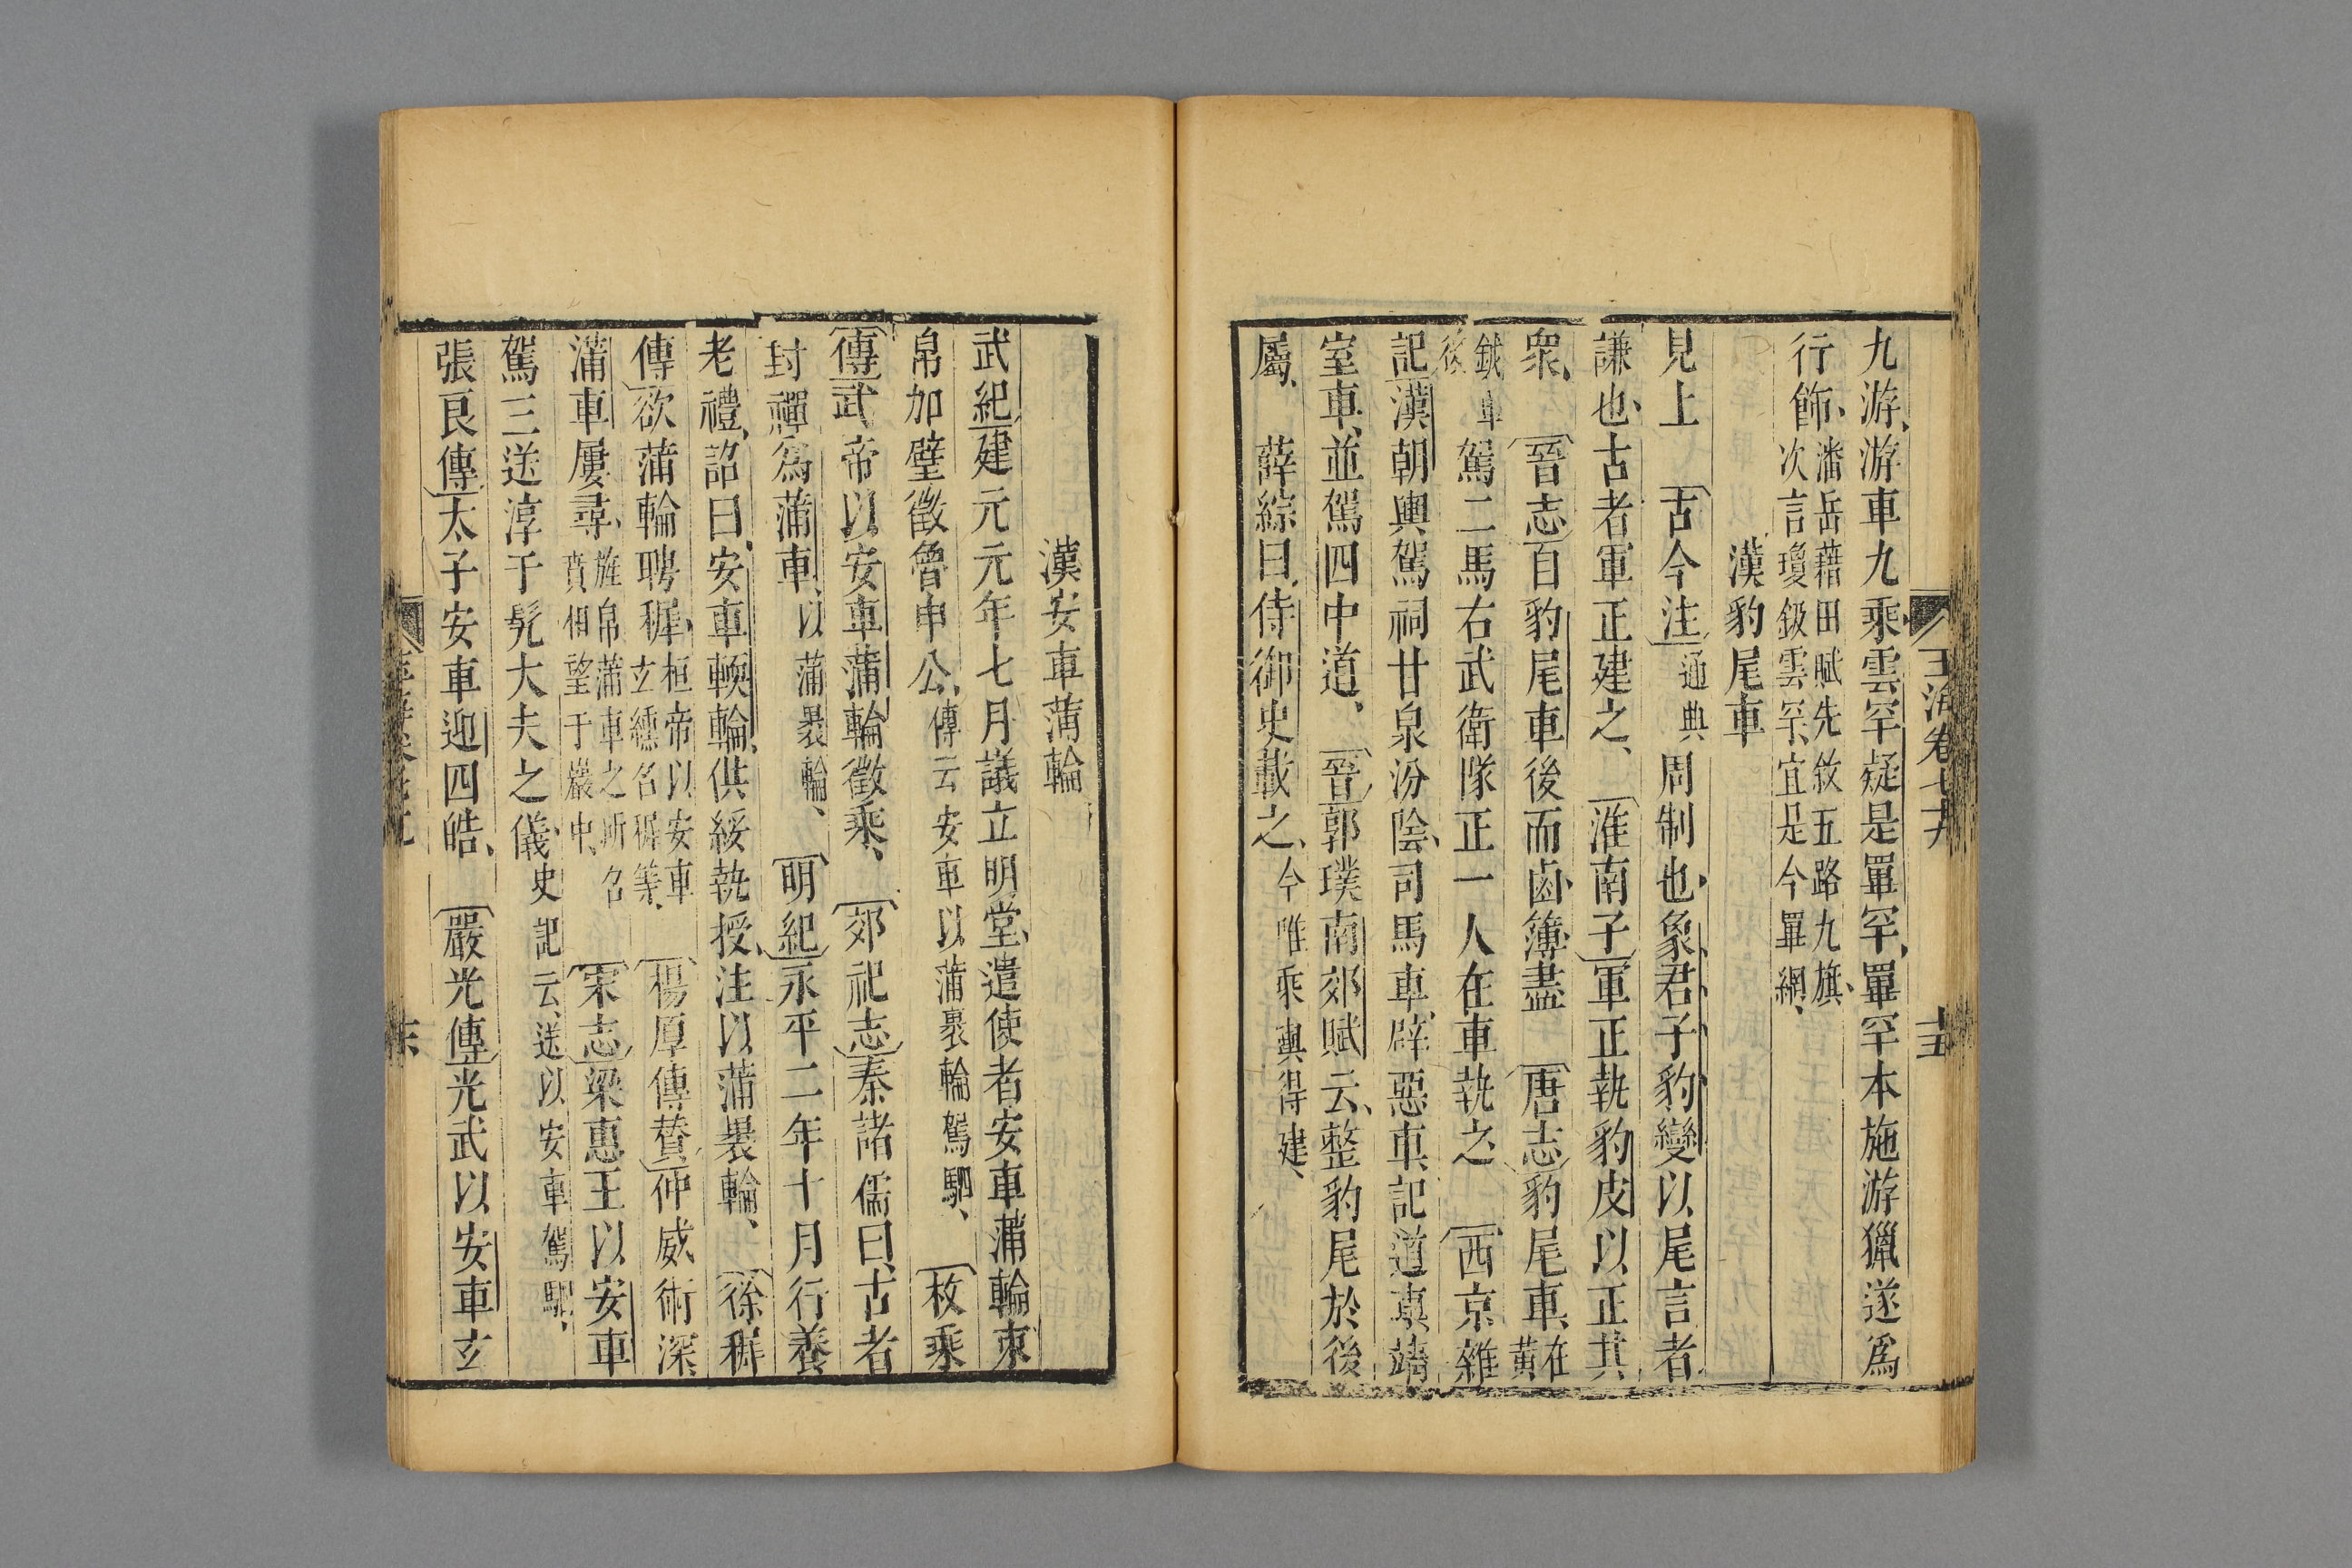 九游游車九乘雲罕疑是罼罕罼罕本施游獵遂爲
行飾潘岳藉田賦先敘五路九旗
次言瓊鈒雲罕宜是今罼網
漢豹尾車
見上 古今注通典周制也象君子豹變以尾言者
謙也古者軍正建之 淮南子軍正執豹皮以正其
衆 晉志百豹尾車後而鹵簿盡 唐志豹尾車在黃
鉞車後駕二馬右武衛隊正一人在車執之 西京雜
記漢朝輿駕祠甘泉汾陰司馬車辟惡車記道車靖
室車並駕四中道 晉郭璞南郊賦云整豹尾於後
屬 薛綜曰侍御史載之今唯乘輿得建
玉海卷七十九
漢安車蒲輪
武紀建元元年七月議立明堂遣使者安車蒲輪束
帛加璧徵魯申公傳云安車以蒲裹輪駕駟 枚乘
傳武帝以安車蒲輪徵乘 郊祀志秦諸儒曰古者
封禪爲蒲車以蒲裹輪 明紀永平二年十月行養
老禮詔曰安車輭輪供綏執授注以蒲裹輪 徐稺
傳欲蒲輪聘稺桓帝以安車
玄纁名稺等 楊厚傳贊仲威術深
蒲車屢尋旌帛蒲車之所召
賁相望于巖中 宋志梁惠王以安車
駕三送淳于髡大夫之儀史記云送以安車駕駟
張良傳太子安車迎四皓 嚴光傳光武以安車玄